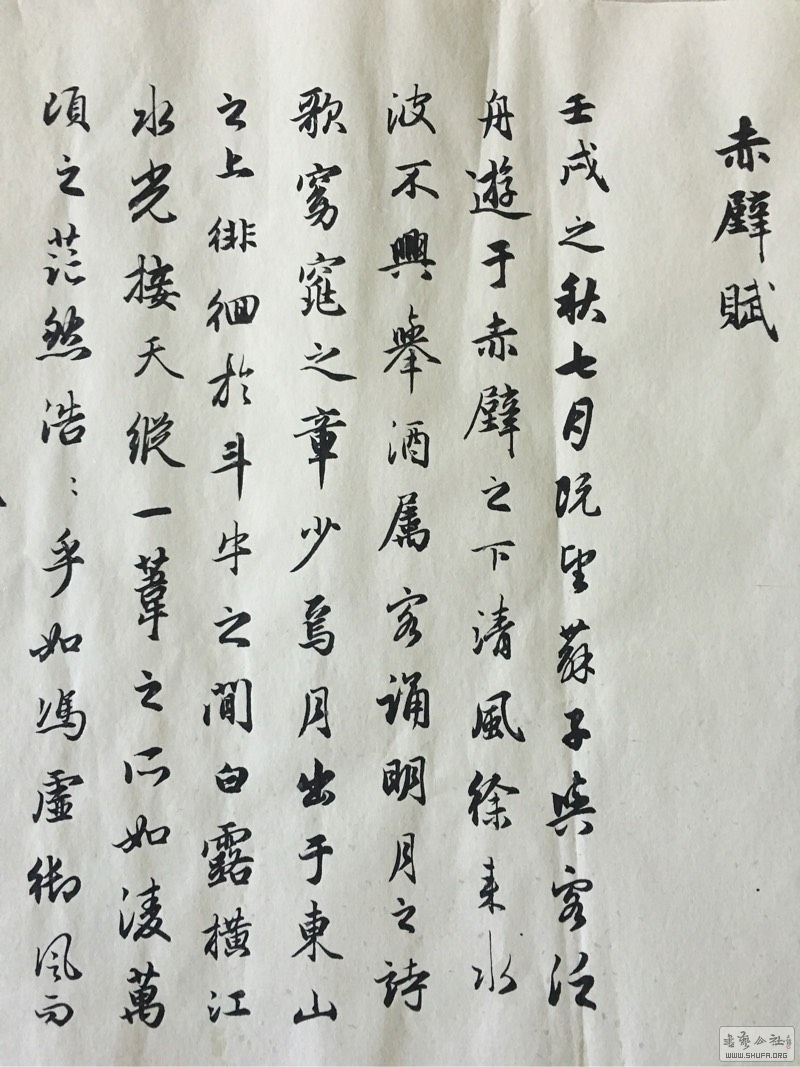 赤壁賦
壬戌之秋七月既望蘇子與客泛
舟遊于赤壁之下清風徐来水
波不興舉酒属客誦明月之詩
歌窈窕之章少焉月出于東山
之上徘徊於斗牛之間白露橫江
水光接天縱一葦之所如凌萬
頃之茫然浩〻乎如馮虛御風而
書藝公社
WWW.SHUFA.ORG